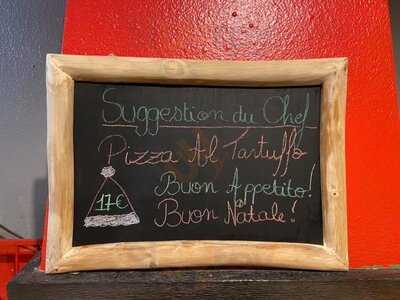 Suggestion du Chef
Pizza Al Tartuffo
Buon Appetito!
17€
Buon Natale!